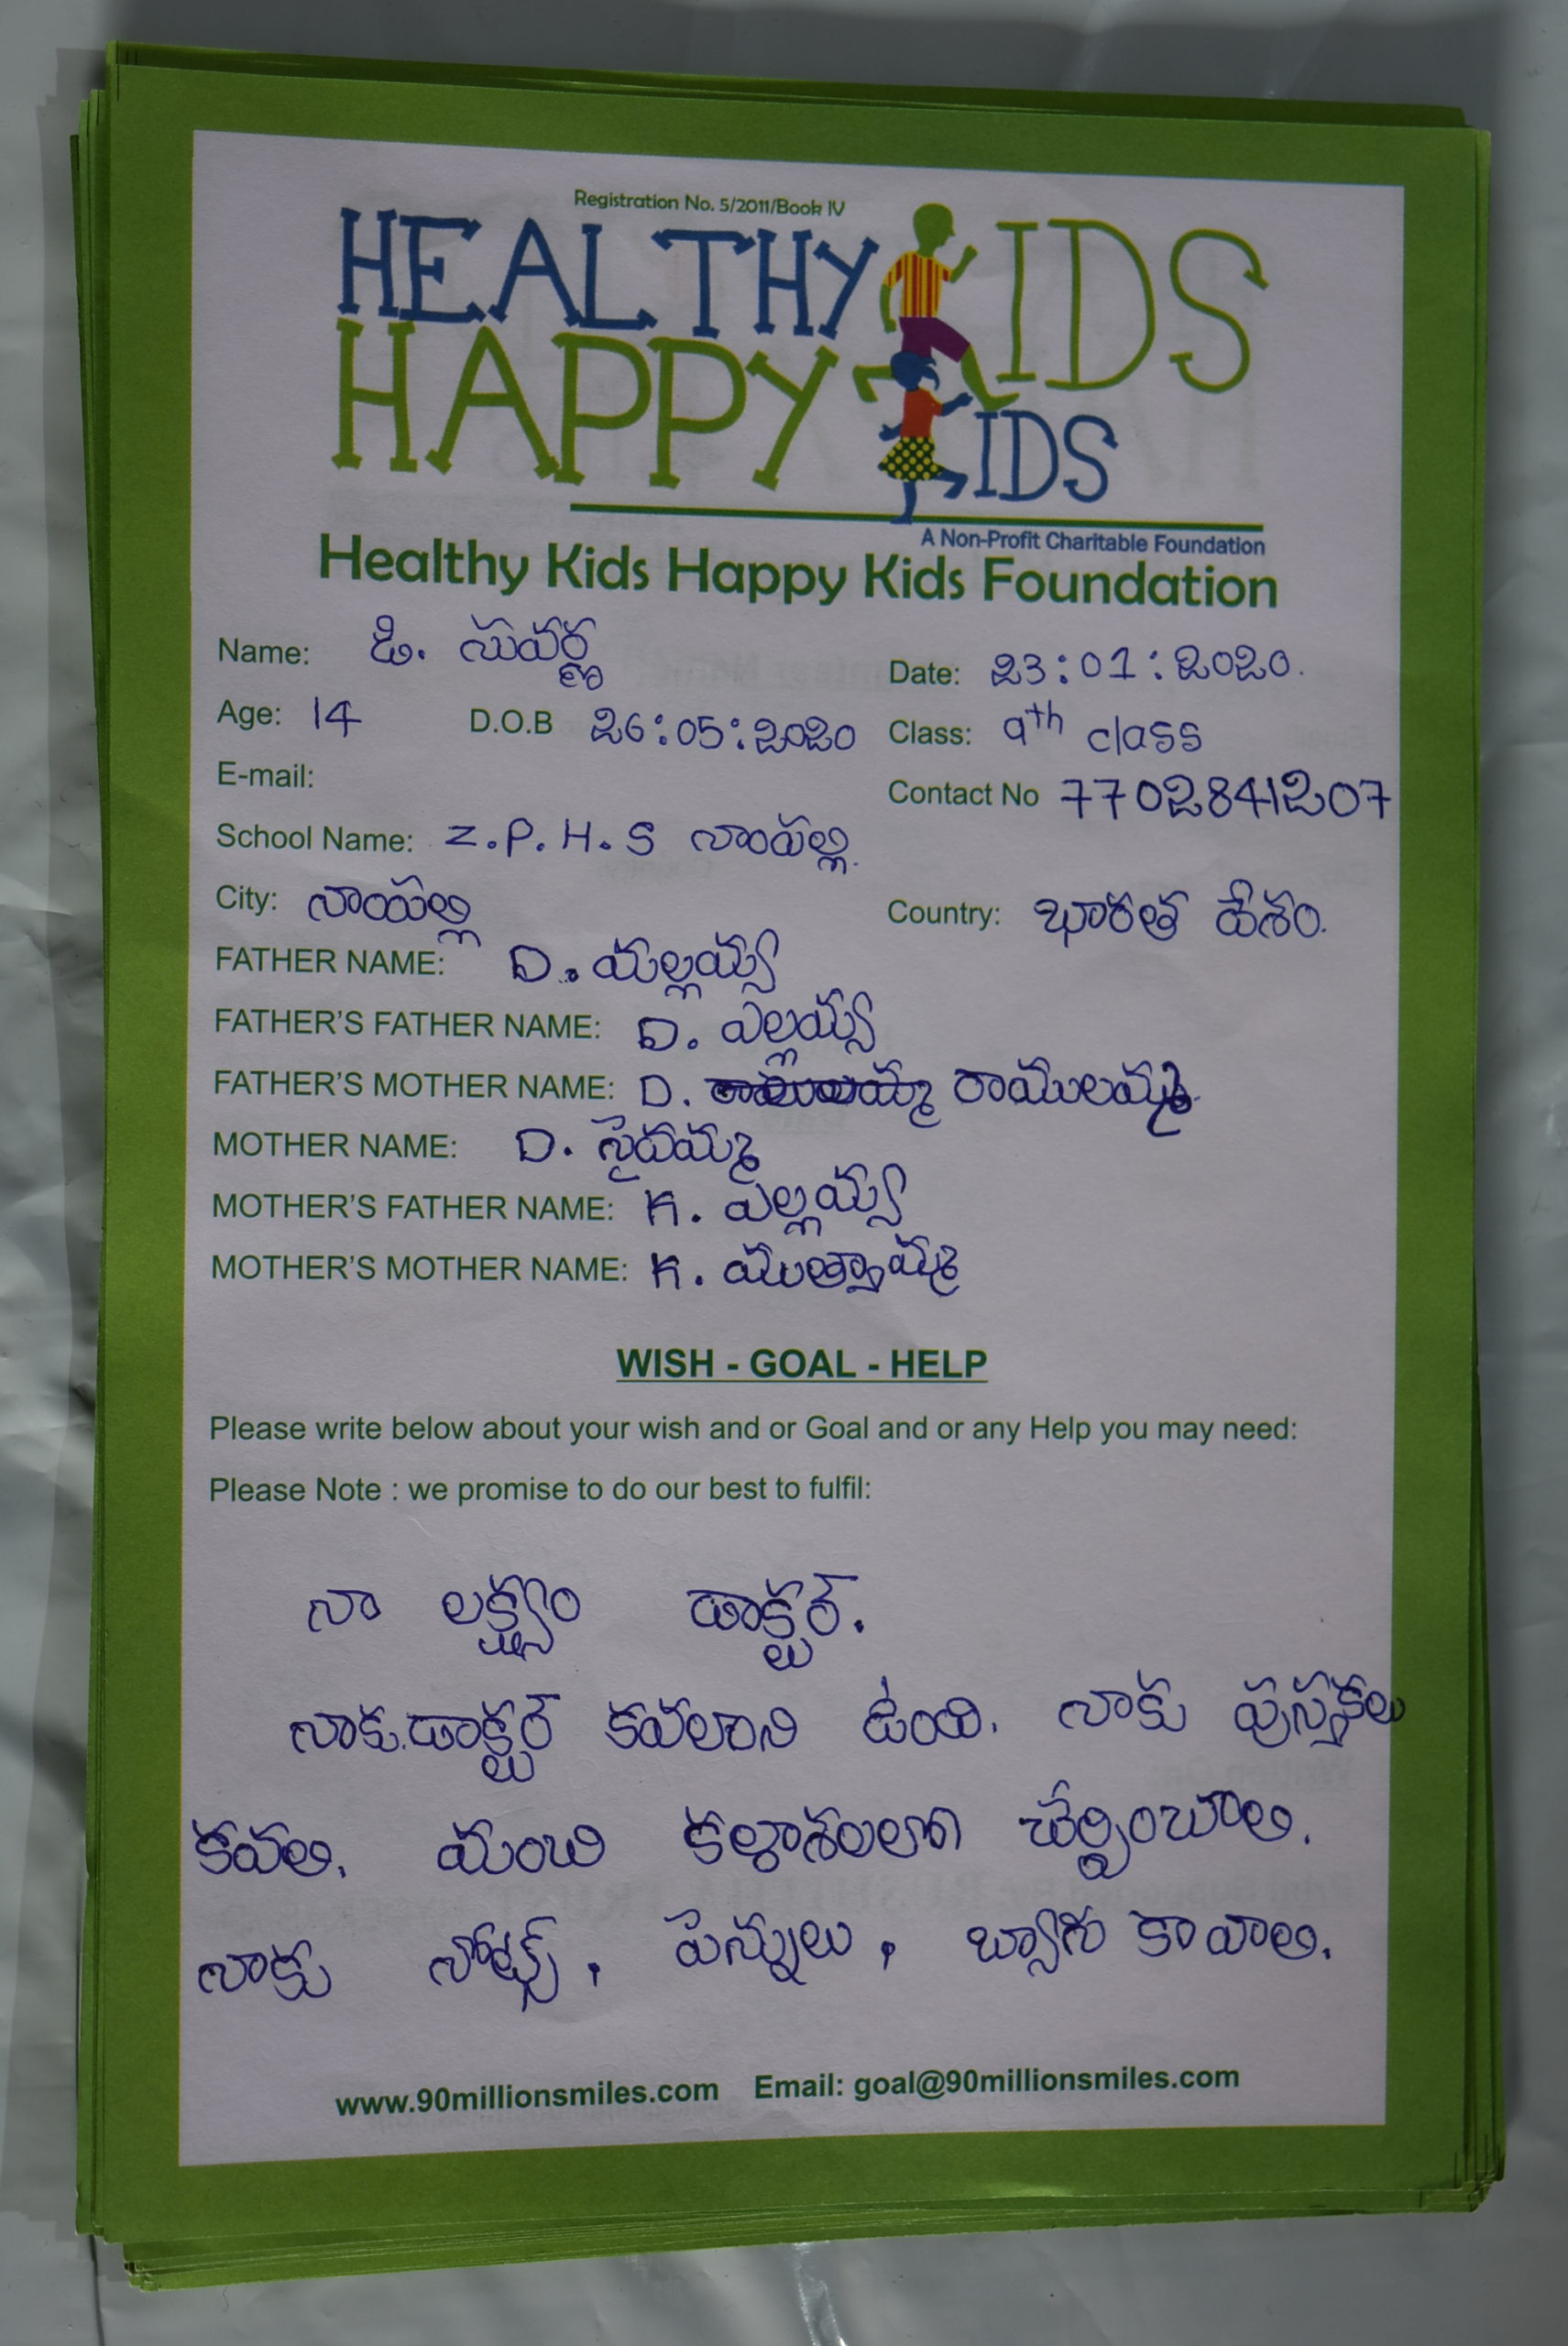 Registration No. 5/2011/Book IV
HEALTHY KIDS
HAPPY KIDS
A Non-Profit Charitable Foundation
Healthy Kids Happy Kids Foundation
Name: డి. సువర్ణ Date: 23:01:2020.
Age: 14 D.O.B 26:05:2020 Class: 9th class
E-mail: Contact No 7702841207
School Name: Z.P.H.S నాంపల్లి.
City: నాంపల్లి Country: భారత దేశం.
FATHER NAME: D. మల్లయ్య
FATHER'S FATHER NAME: D. ఎల్లయ్య
FATHER'S MOTHER NAME: D. రాములమ్మ
MOTHER NAME: D. సైదమ్మ
MOTHER'S FATHER NAME: K. ఎల్లయ్య
MOTHER'S MOTHER NAME: K. ముత్యామ్మ
WISH - GOAL - HELP
Please write below about your wish and or Goal and or any Help you may need:
Please Note : we promise to do our best to fulfil:
నా లక్ష్యం డాక్టర్.
నాకు డాక్టర్ కవలని ఉంది. నాకు పుస్తకలు
కవలి. మంచి కళాశలలో చేర్పించాలి.
నాకు నోట్స్, పెన్నులు, బ్యాగు కావాలి.
www.90millionsmiles.com Email: goal@90millionsmiles.com